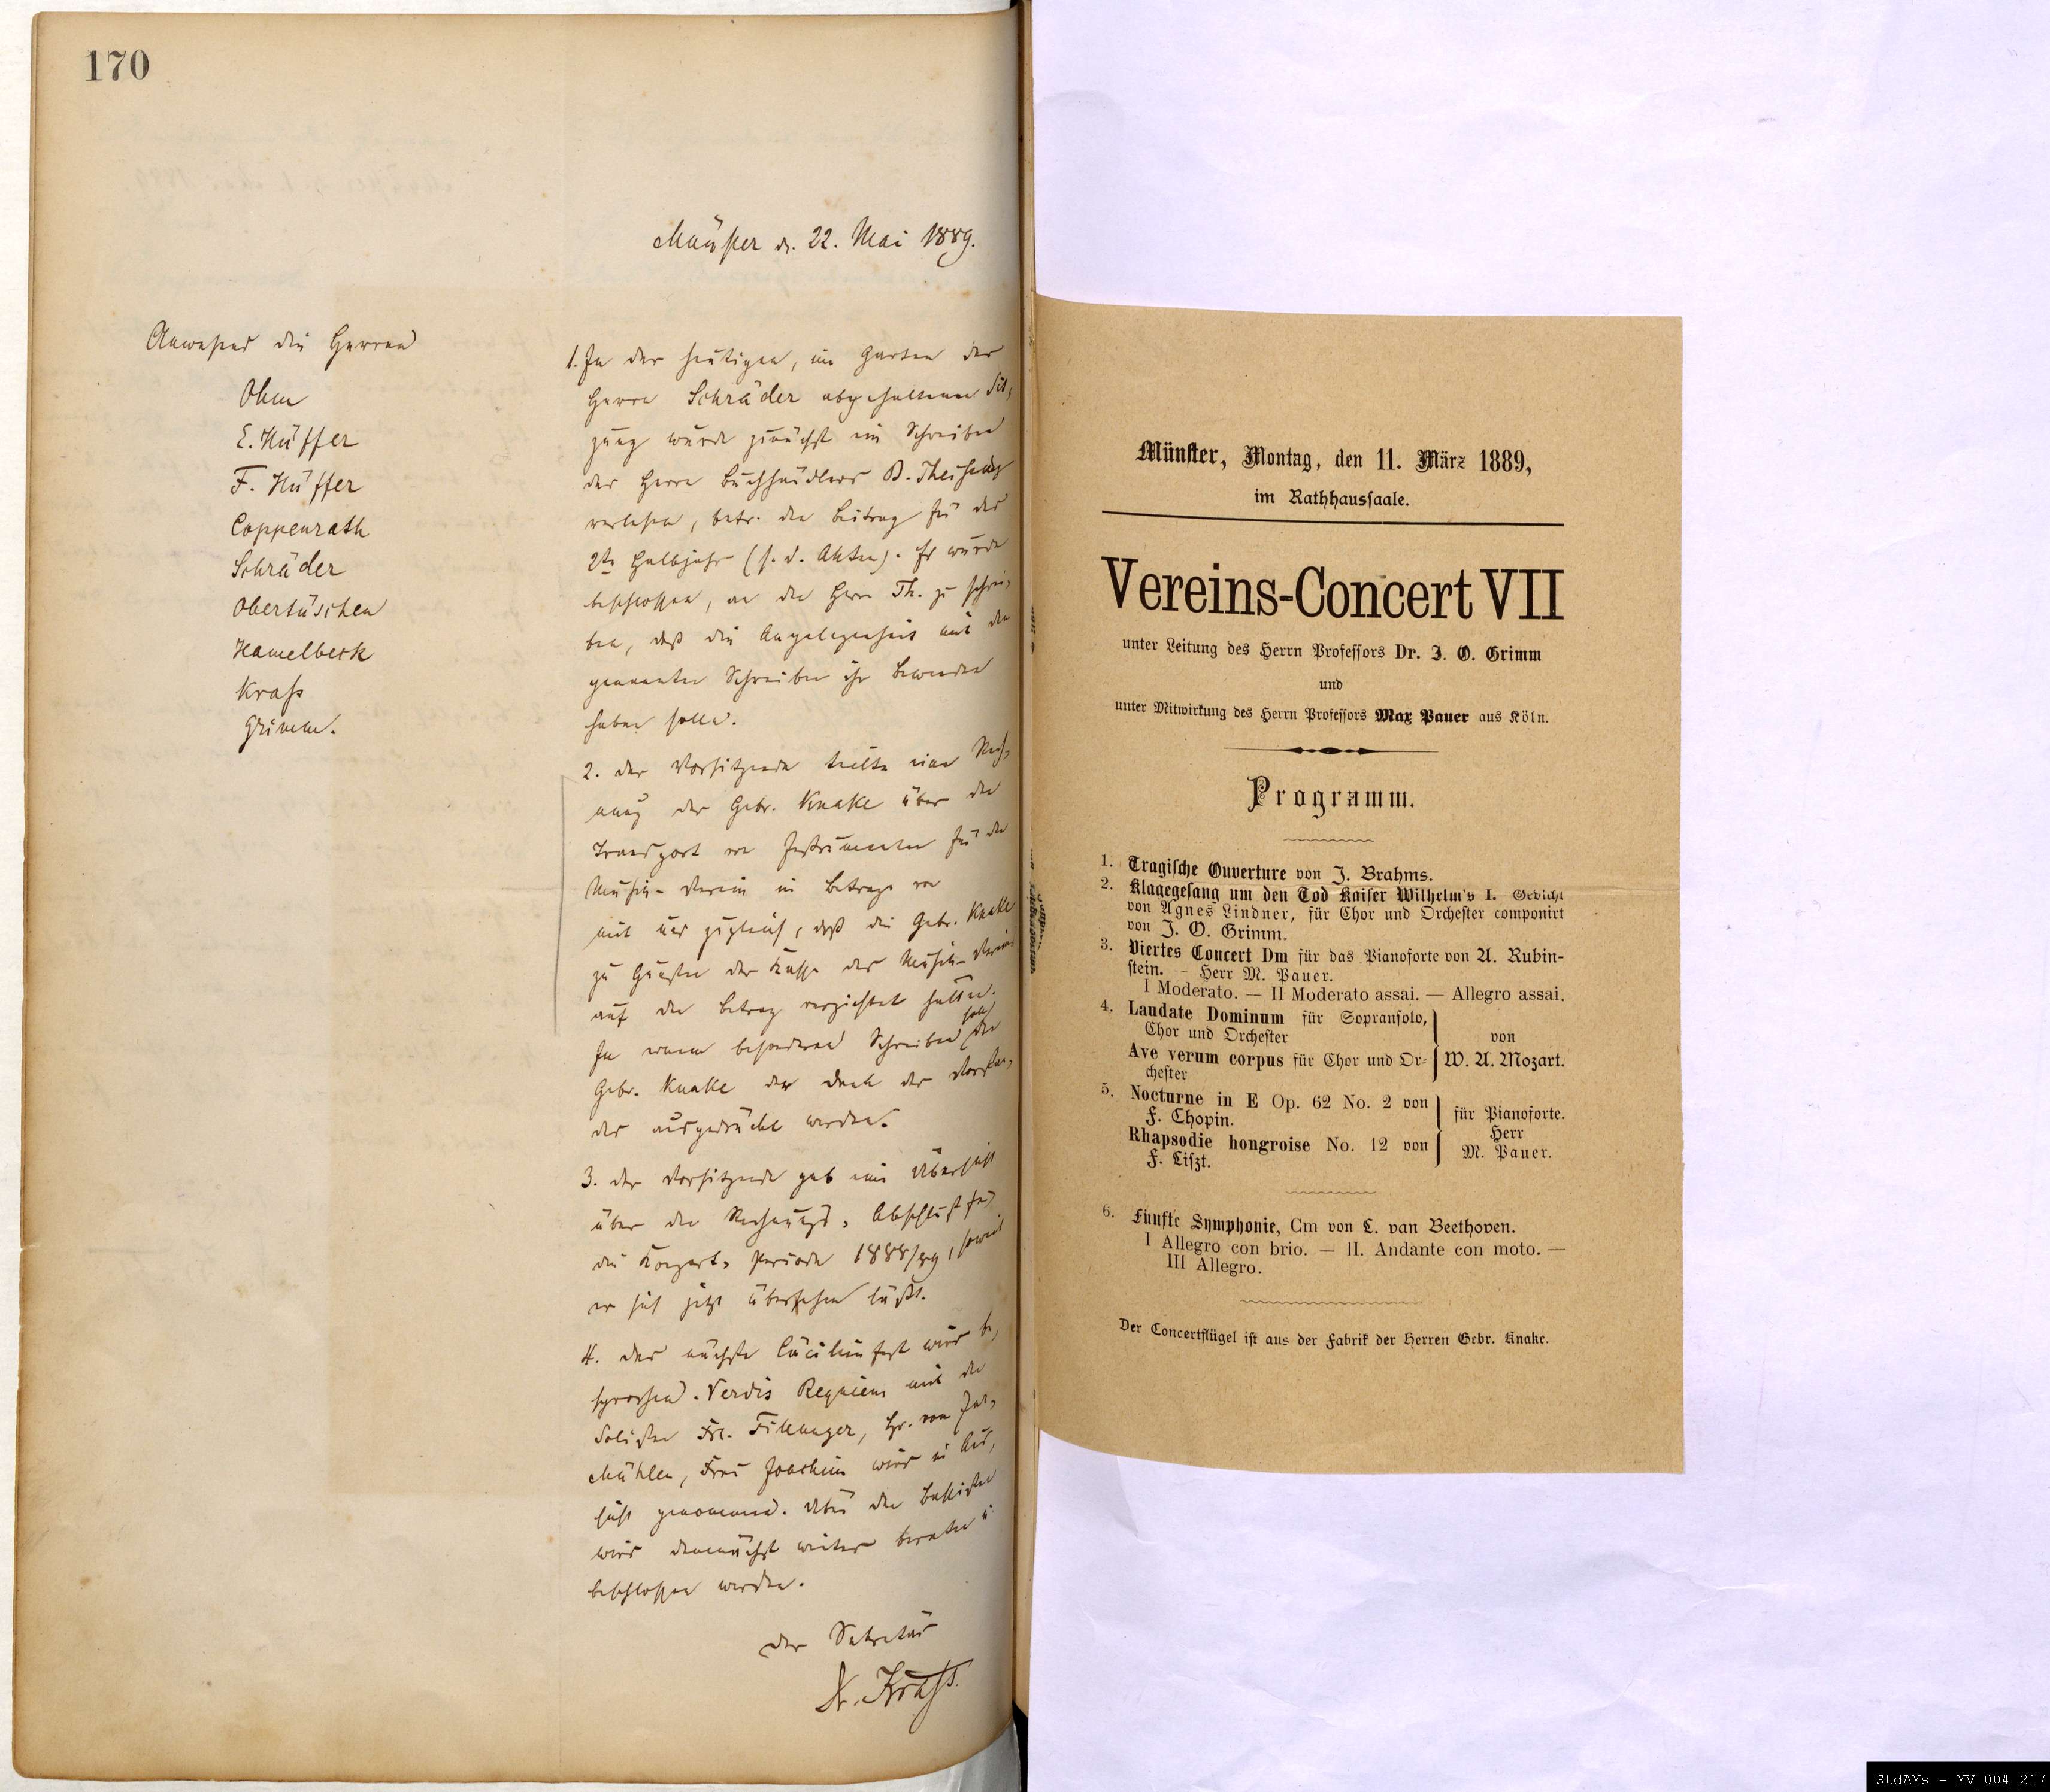 170
Münster d. 22. Mai 1889.
Anwesend die Herren
Ohm
E. Hüffer
F. Hüffer
Coppenrath
Schräder
Obertüschen
Hamelbeck
Kraß
Grimm.
1. In der heutigen, im Garten des
Herrn Schräder abgehaltenen Sit-
zung wurde zunächst ein Schreiben
des Herrn Buchhändlers B. Theissing
verlesen, betr. den Beitrag für das
2te Halbjahr (s. d. Akten). Es wurde
beschlossen, an den Herrn Th. zu schrei-
ben, daß die Angelegenheit mit dem
genannten Schreiben ihr Bewenden
haben solle.
2. Der Vorsitzende teilte eine Rech-
nung der Gebr. Knake über den
Transport von Instrumenten für den
Musik-Verein im Betrage von
mit und zugleich, daß die Gebr. Knake
zu Gunsten der Kasse des Musik-Vereins
auf den Betrag verzichtet hätten.
In einem besonderen Schreiben soll den
Gebr. Knake der Dank des Vorstan-
des ausgedrückt werden.
3. Der Vorsitzende gab eine Übersicht
über den Rechnungs-Abschluß für
die Konzert-Periode 1888/89, soweit
er sich jetzt übersehen läßt.
4. Das nächste Cäcilienfest wird be-
sprochen. Verdis Requiem mit den
Solisten Frl. Fillunger, Hr. von Zur-
Mühlen, Frau Joachim wird in Aus-
sicht genommen. Über den Bassisten
wird demnächst weiter beraten u.
beschlossen werden.
Der Sekretär
Dr. Kraß.
Münster, Montag, den 11. März 1889,
im Rathhaussaale.
Vereins-Concert VII
unter Leitung des Herrn Professors Dr. J. O. Grimm
und
unter Mitwirkung des Herrn Professors Max Pauer aus Köln.
Programm.
1. Tragische Ouverture von J. Brahms.
2. Klagegesang um den Tod Kaiser Wilhelm's I. Gedicht
von Agnes Lindner, für Chor und Orchester componirt
von J. O. Grimm.
3. Viertes Concert Dm für das Pianoforte von A. Rubin-
stein. – Herr M. Pauer.
I Moderato. — II Moderato assai. — Allegro assai.
4. Laudate Dominum für Sopransolo,
Chor und Orchester
Ave verum corpus für Chor und Or-
chester
von
W. A. Mozart.
5. Nocturne in E Op. 62 No. 2 von
F. Chopin.
Rhapsodie hongroise No. 12 von
F. Liszt.
für Pianoforte.
Herr
M. Pauer.
6. Fünfte Symphonie, Cm von L. van Beethoven.
I Allegro con brio. — II. Andante con moto. —
III Allegro.
Der Concertflügel ist aus der Fabrik der Herren Gebr. Knake.
StdAMs - MV_004_217